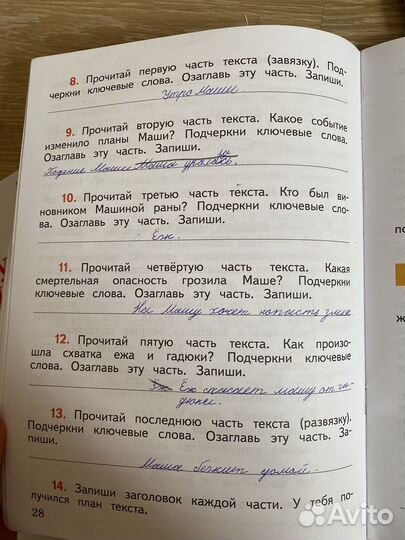 8. Прочитай первую часть текста (завязку). Под-
черкни ключевые слова. Озаглавь эту часть. Запиши.
Утро Маши.
9. Прочитай вторую часть текста. Какое событие
изменило планы Маши? Подчеркни ключевые слова.
Озаглавь эту часть. Запиши.
Маши Маша
10. Прочитай третью часть текста. Кто был ви-
новником Машиной раны? Подчеркни ключевые сло-
ва. Озаглавь эту часть. Запиши.
Ёж.
11. Прочитай четвёртую часть текста. Какая
смертельная опасность грозила Маше? Подчеркни
ключевые слова. Озаглавь эту часть. Запиши.
На Машу хочет напасть змея
12. Прочитай пятую часть текста. Как произо-
шла схватка ежа и гадюки? Подчеркни ключевые
слова. Озаглавь эту часть. Запиши.
Ёж спасает машу от га-
дюки.
13. Прочитай последнюю часть текста (развязку).
Подчеркни ключевые слова. Озаглавь эту часть. За-
пиши.
Маша бежит домой.
14. Запиши заголовок каждой части. У тебя по-
лучился план текста.
28
по
ж
Avito